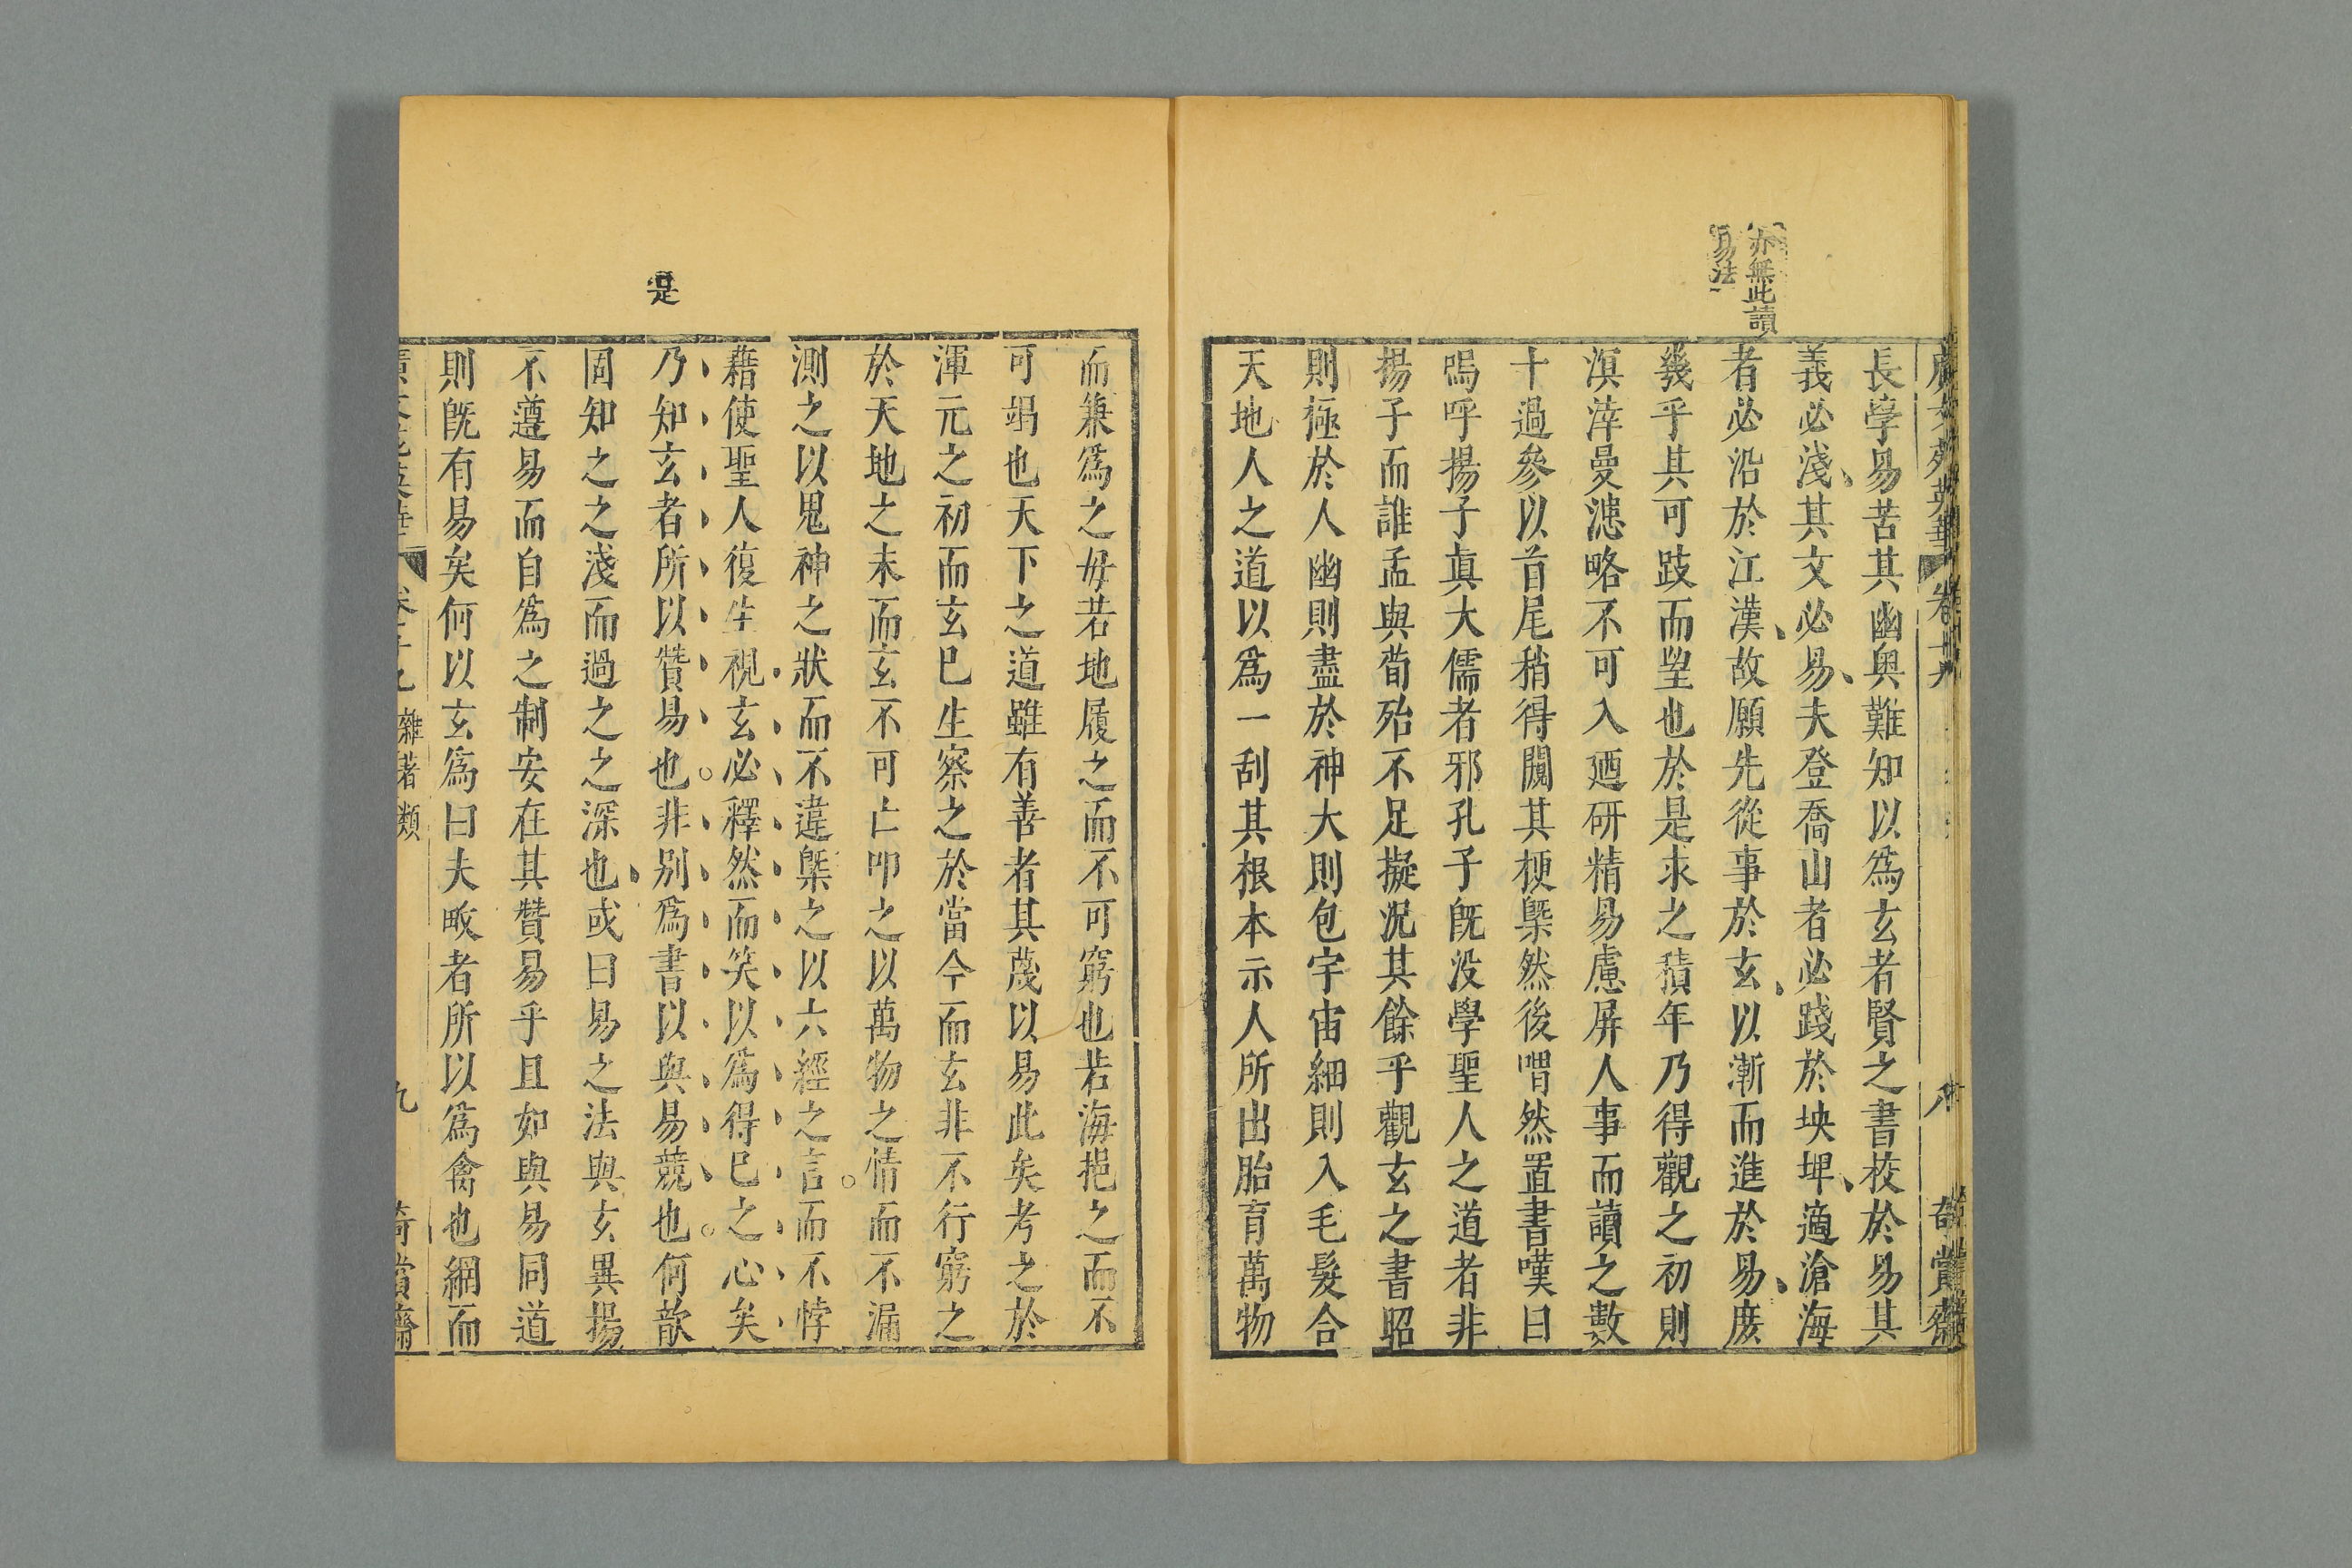 亦無此讀
易法
廣文苑英華 卷十九 八 奇賞齋
長學易苦其幽奥難知以爲玄者賢之書校於易其
義必淺其文必易夫登喬山者必踐於坱埤適滄海
者必沿於江漢故願先從事於玄以漸而進於易庻
幾乎其可跂而朢也於是求之積年乃得觀之初則
溟涬曼漶略不可入廼研精易慮屏人事而讀之數
十過參以首尾稍得闚其梗槩然後喟然置書嘆曰
嗚呼揚子真大儒者邪孔子旣没學聖人之道者非
揚子而誰孟與荀殆不足擬况其餘乎觀玄之書昭
則極於人幽則盡於神大則包宇宙細則入毛髮合
天地人之道以爲一刮其根本示人所出胎育萬物
而兼爲之母若地履之而不可窮也若海挹之而不
可竭也天下之道雖有善者其蔑以易此矣考之於
渾元之初而玄已生察之於當今而玄非不行窮之
於天地之末而玄不可亡叩之以萬物之情而不漏
測之以鬼神之狀而不違槩之以六經之言而不悖
藉使聖人復生視玄必釋然而笑以爲得已之心矣
是
乃知玄者所以贊易也非别爲書以與易競也何歆
固知之之淺而過之之深也或曰易之法與玄異揚
不遵易而自爲之制安在其贊易乎且如與易同道
則旣有易矣何以玄爲曰夫畋者所以爲禽也網而
廣文苑英華 卷十九 雜著類 九 奇賞齋